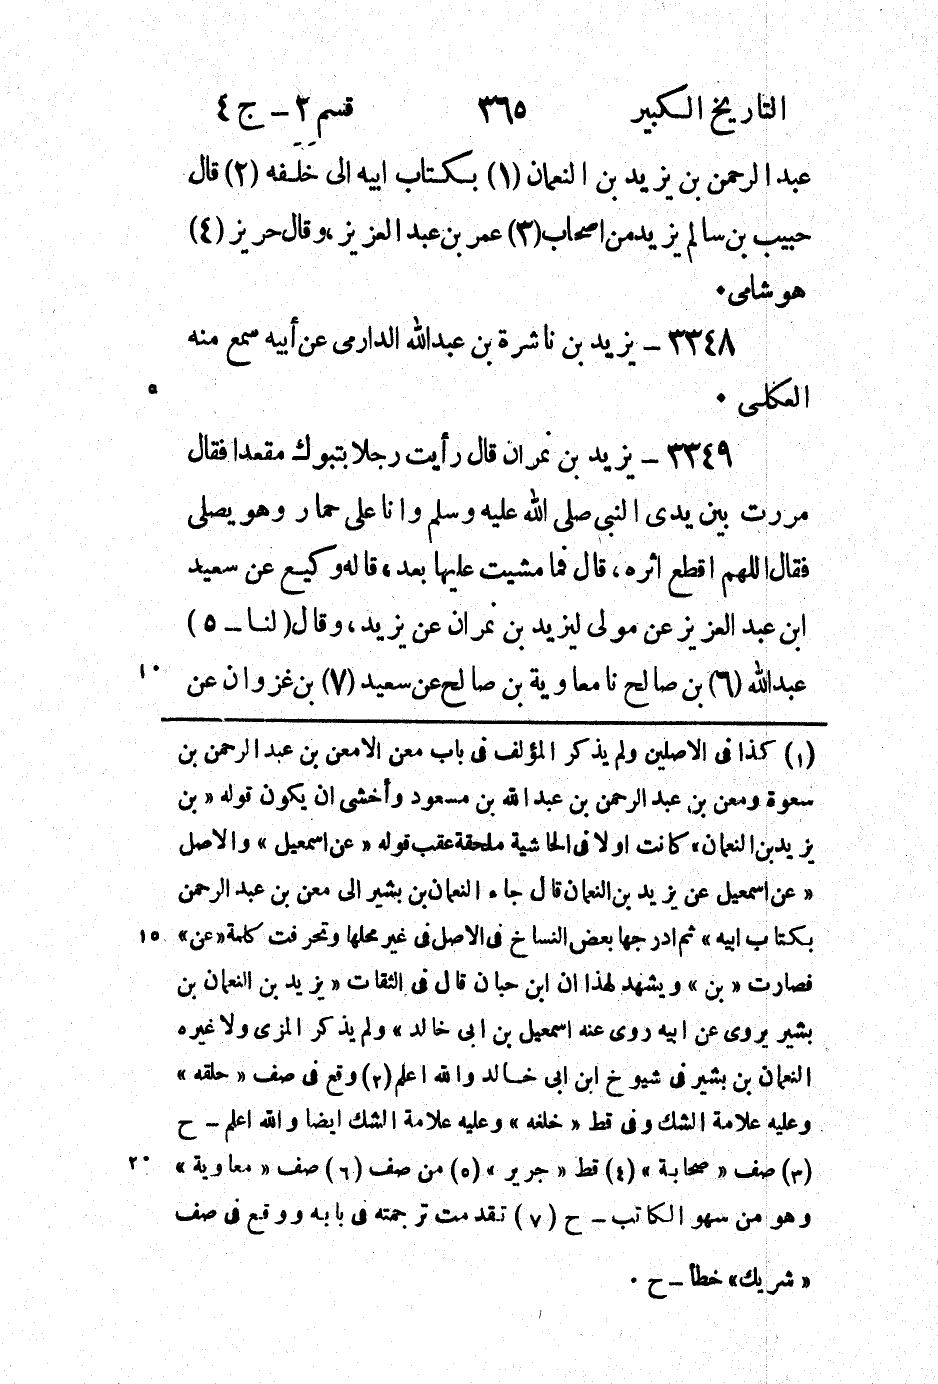 التاريخ الكبير ٣٦٥ قسم ٢ – ج ٤
عبد الرحمن بن يزيد بن النعمان (١) بكتاب ابيه الى خلفه (٢) قال
حبيب بن سالم يزيد من اصحاب (٣) عمر بن عبد العزيز، وقال حريز (٤)
هو شامى٠
٣٣٤٨ – يزيد بن ناشرة بن عبدالله الدارمى عن أبيه سمع منه
العكلى ٠
٥
٣٣٤٩ – يزيد بن نمران قال رأيت رجلا بتبوك مقعدا فقال
مررت بين يدى النبي صلى الله عليه وسلم وانا على حمار وهو يصلى
فقال اللهم اقطع اثره، قال فما مشيت عليها بعد، قاله وكيع عن سعيد
ابن عبد العزيز عن مولى ليزيد بن نمران عن يزيد، وقال (لنا – ٥)
عبدالله (٦) بن صالح نا معاوية بن صالح عن سعيد (٧) بن غزوان عن
١٠
(١) كذا فى الاصلين ولم يذكر المؤلف فى باب معن الا معن بن عبد الرحمن بن
سعوة ومعن بن عبد الرحمن بن عبد الله بن مسعود وأخشى ان يكون قوله « بن
يزيد بن النعمان» كانت اولا فى الحاشية ملحقة عقب قوله « عن اسمعيل » والاصل
« عن اسمعيل عن يزيد بن النعمان قال جاء النعمان بن بشير الى معن بن عبد الرحمن
بكتاب ابيه » ثم ادرجها بعض النساخ فى الاصل فى غير محلها وتحرفت كلمة «عن»
١٥
فصارت « بن » ويشهد لهذا ان ابن حبان قال فى الثقات « يزيد بن النعمان بن
بشير يروى عن ابيه روى عنه اسمعيل بن ابى خالد » ولم يذكر المزى ولا غيره
النعمان بن بشير فى شيوخ ابن ابى خالد والله اعلم (٢) وقع فى صف « حلقه »
وعليه علامة الشك وفى قط « خلفه » وعليه علامة الشك ايضا والله اعلم – ح
(٣) صف « صحابة » (٤) قط « جرير » (٥) من صف (٦) صف « معاوية »
٢٠
وهو من سهو الكاتب – ح (٧) تقدمت ترجمته فى بابه ووقع فى صف
« شريك» خطأ – ح ٠